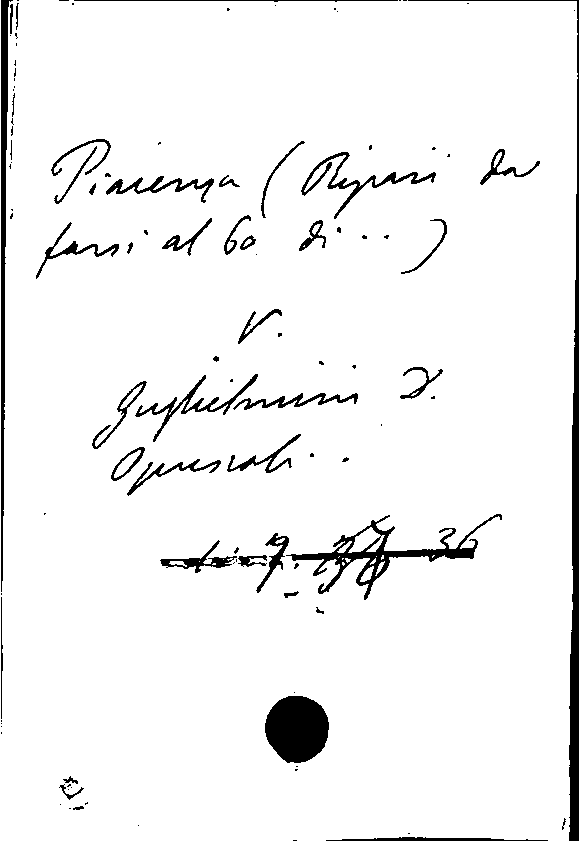 Piacenza (Ripari da
farsi al Po di ..)
V.
Guglielmini D.
Opuscoli ..
36